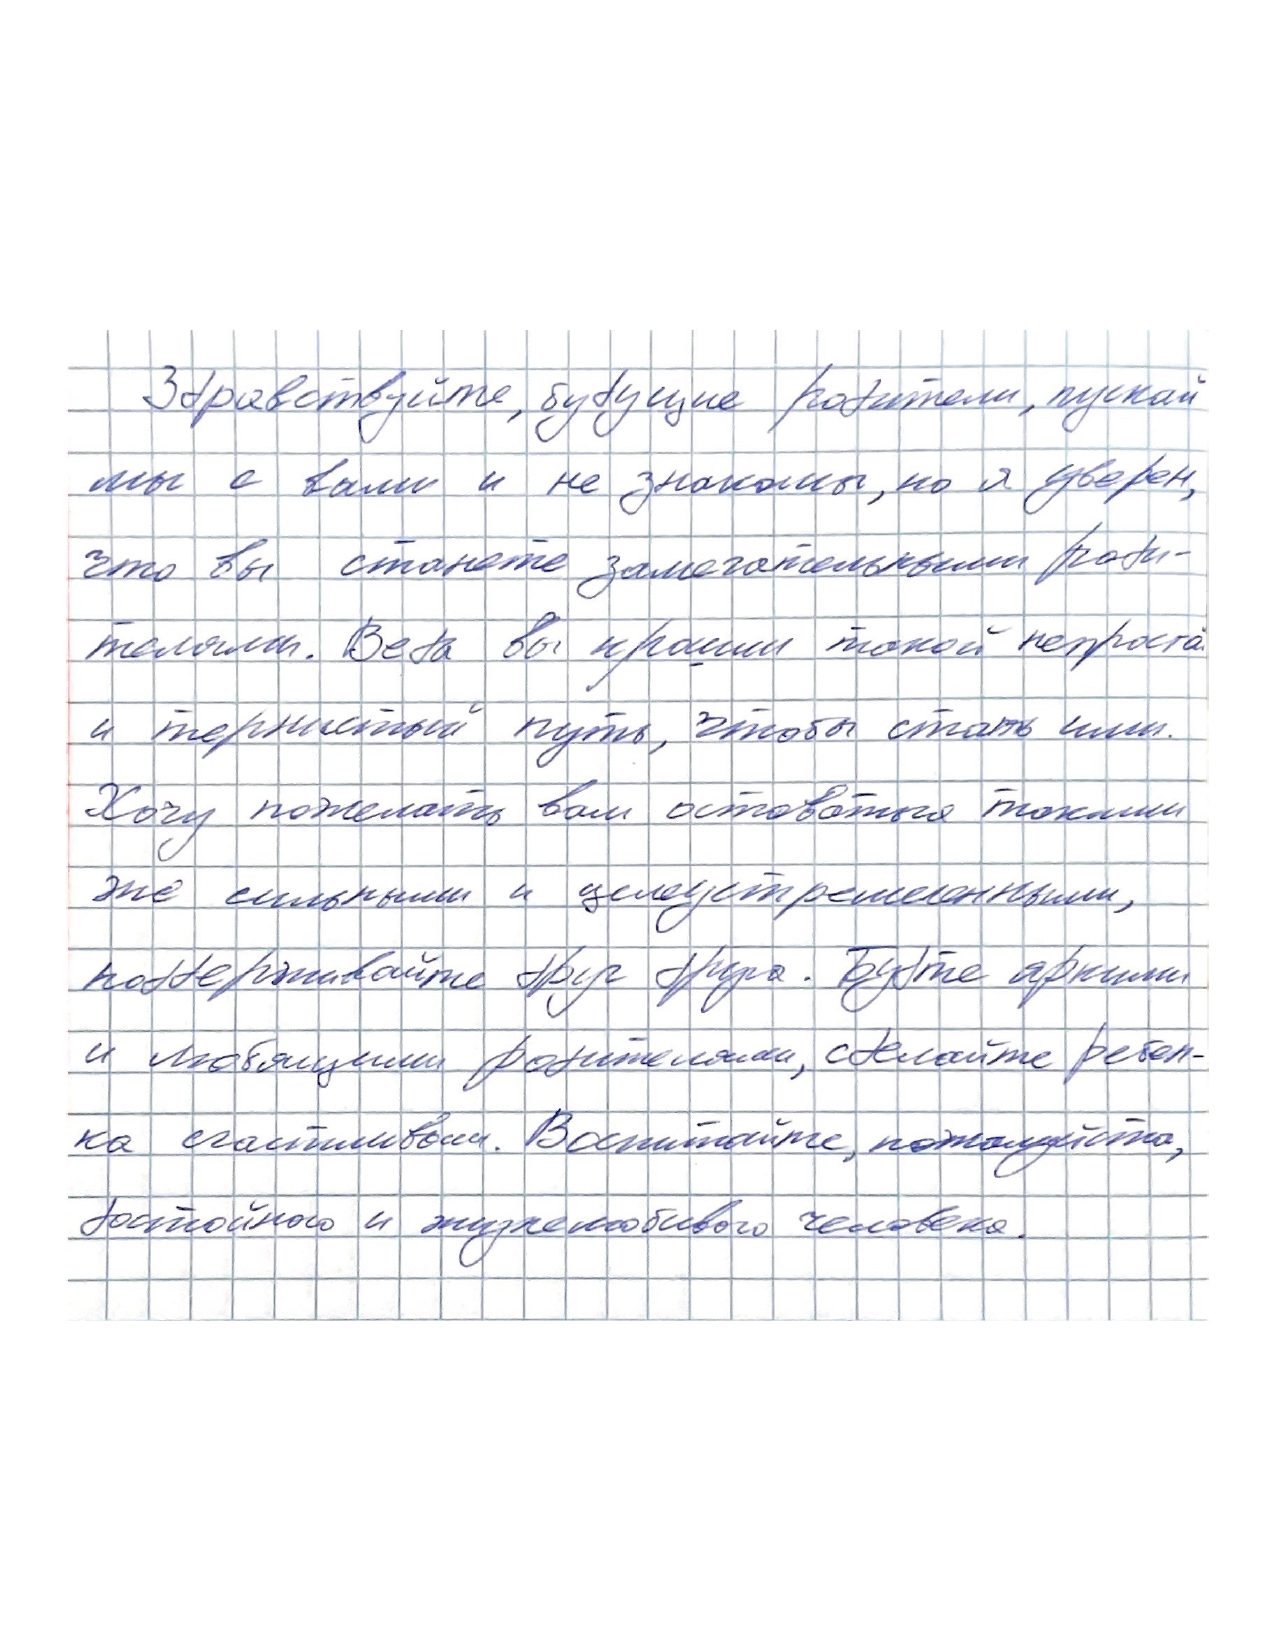 Здравствуйте, будущие родители, пускай
мы с вами и не знакомы, но я уверен,
что вы станете замечательными роди-
телями. Ведь вы прошли такой непростой
и тернистый путь, чтобы стать ими.
Хочу пожелать вам оставаться такими
же сильными и целеустремленными,
поддерживайте друг друга. Будьте яркими
и любящими родителями, сделайте ребен-
ка счастливым. Воспитайте, пожалуйста,
достойного и жизнелюбивого человека.